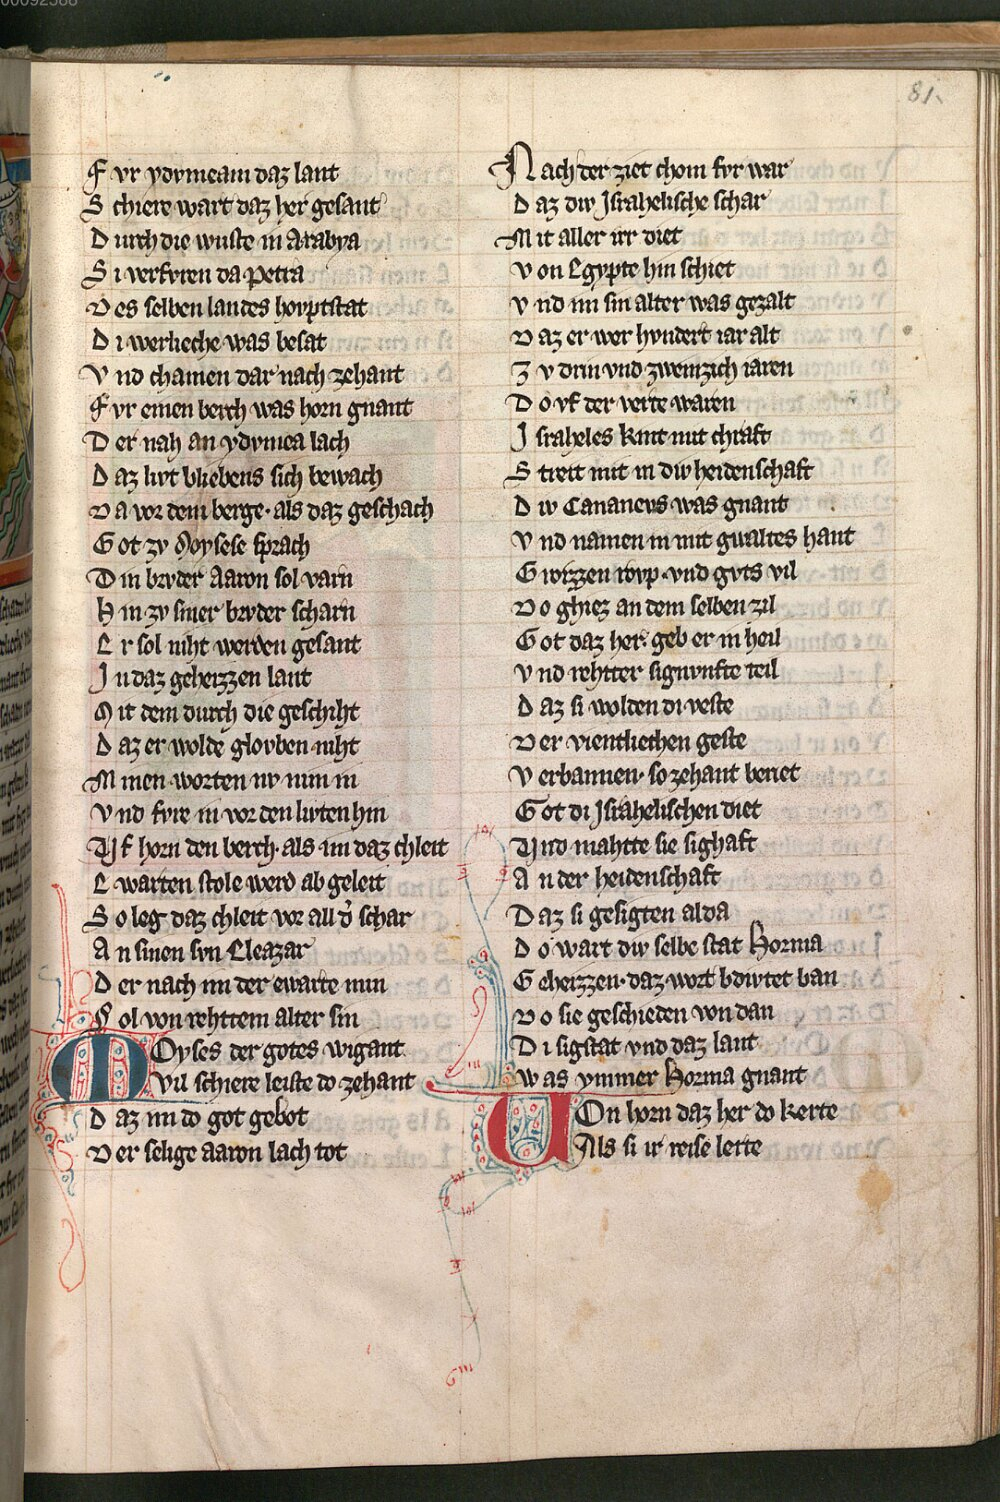 00092588
81.
F vr ydvmeam daz lant
S chiere wart daz her gesant
D urch die wuste in Arabya
S i verfvren da Petra
D es selben landes hovptstat
D i werlieche was besat
V nd chamen dar nach zehant
F vr einen berch was horn gnant
D er nah an ydvmea lach
D az livt bliebens sich bewach
D a vor dem berge· als daz geschach
G ot zv Moysese sprach
D in brvder Aaron sol varn
H in zv siner brvder scharn
E r sol niht werden gesant
I n daz geheizzen lant
M it dem durch die geschiht
D az er wolde glovben niht
M inen worten nv nim in
V nd fvre in vor den livten hin
Vf horn den berch· als im daz chleit
E warten stole werd ab geleit
S o leg daz chleit vor all d̾ schar
A n sinen svn Eleazar
D er nach im der ewarte min
S ol von rehttem alter sin
MOyses der gotes wigant
Vil schiere leiste do zehant
D az im do got gebot
D er selige aaron lach tot
N ach der ziet chom fvr war
D az div Israhelische schar
M it aller irr diet
V on Egypte hin schiet
V nd im sin alter was gezalt
D az er wer hvndert iar alt
Z v drin vnd zweinzich iaren
D o vf der verte waren
I sraheles kint mit chraft
S treit mit in div heidenschaft
D iv Cananevs was gnant
V nd namen in mit gwaltes hant
G rozzen rovp· vnd gvts vil
D o ghiez an dem selben zil
G ot daz her· geb er in heil
V nd rehtter signvnfte teil
D az si wolden di veste
D er vientliechen geste
V erbannen· so zehant beriet
G ot di Israhelischen diet
Vnd mahtte sie sighaft
A n der heidenschaft
D az si gesigten alda
D o wart div selbe stat Horma
G eheizzen· daz wort bdivtet ban
D o sie geschieden von dan
D i sigstat vnd daz lant
was ymmer Horma gnant
VOn horn daz her do kerte
Als si ir reise lerte